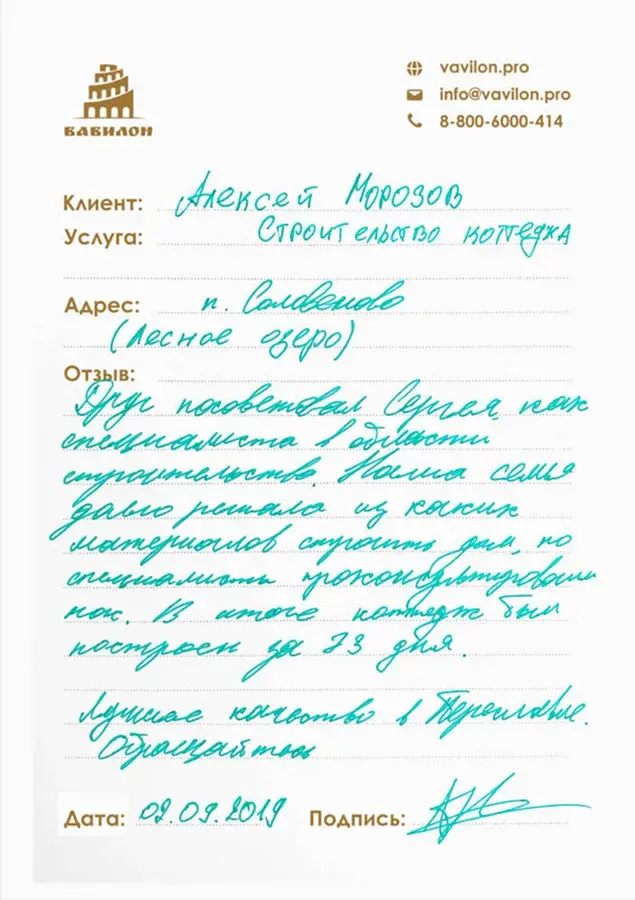 ВАВИЛОН
vavilon.pro
info@vavilon.pro
8-800-6000-414
Клиент: Алексей Морозов
Услуга: Строительство коттеджа
Адрес: п. Соловеново
(Лесное озеро)
Отзыв:
Друг посоветовал Сергея, как
специалиста в области
строительства. Наша семья
давно решала из каких
материалов строить дом, но
специалисты проконсультировали
нас. В итоге коттедж был
построен за 73 дня.
Лучшее качество в Переславле.
Обращайтесь
Дата: 02.09.2019 Подпись: